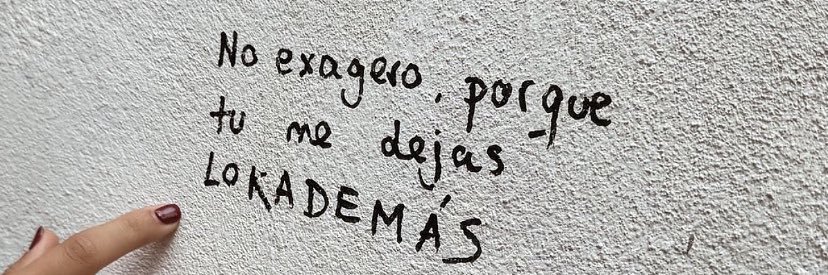 No exagero, porque
tu me dejas
LOKADEMÁS